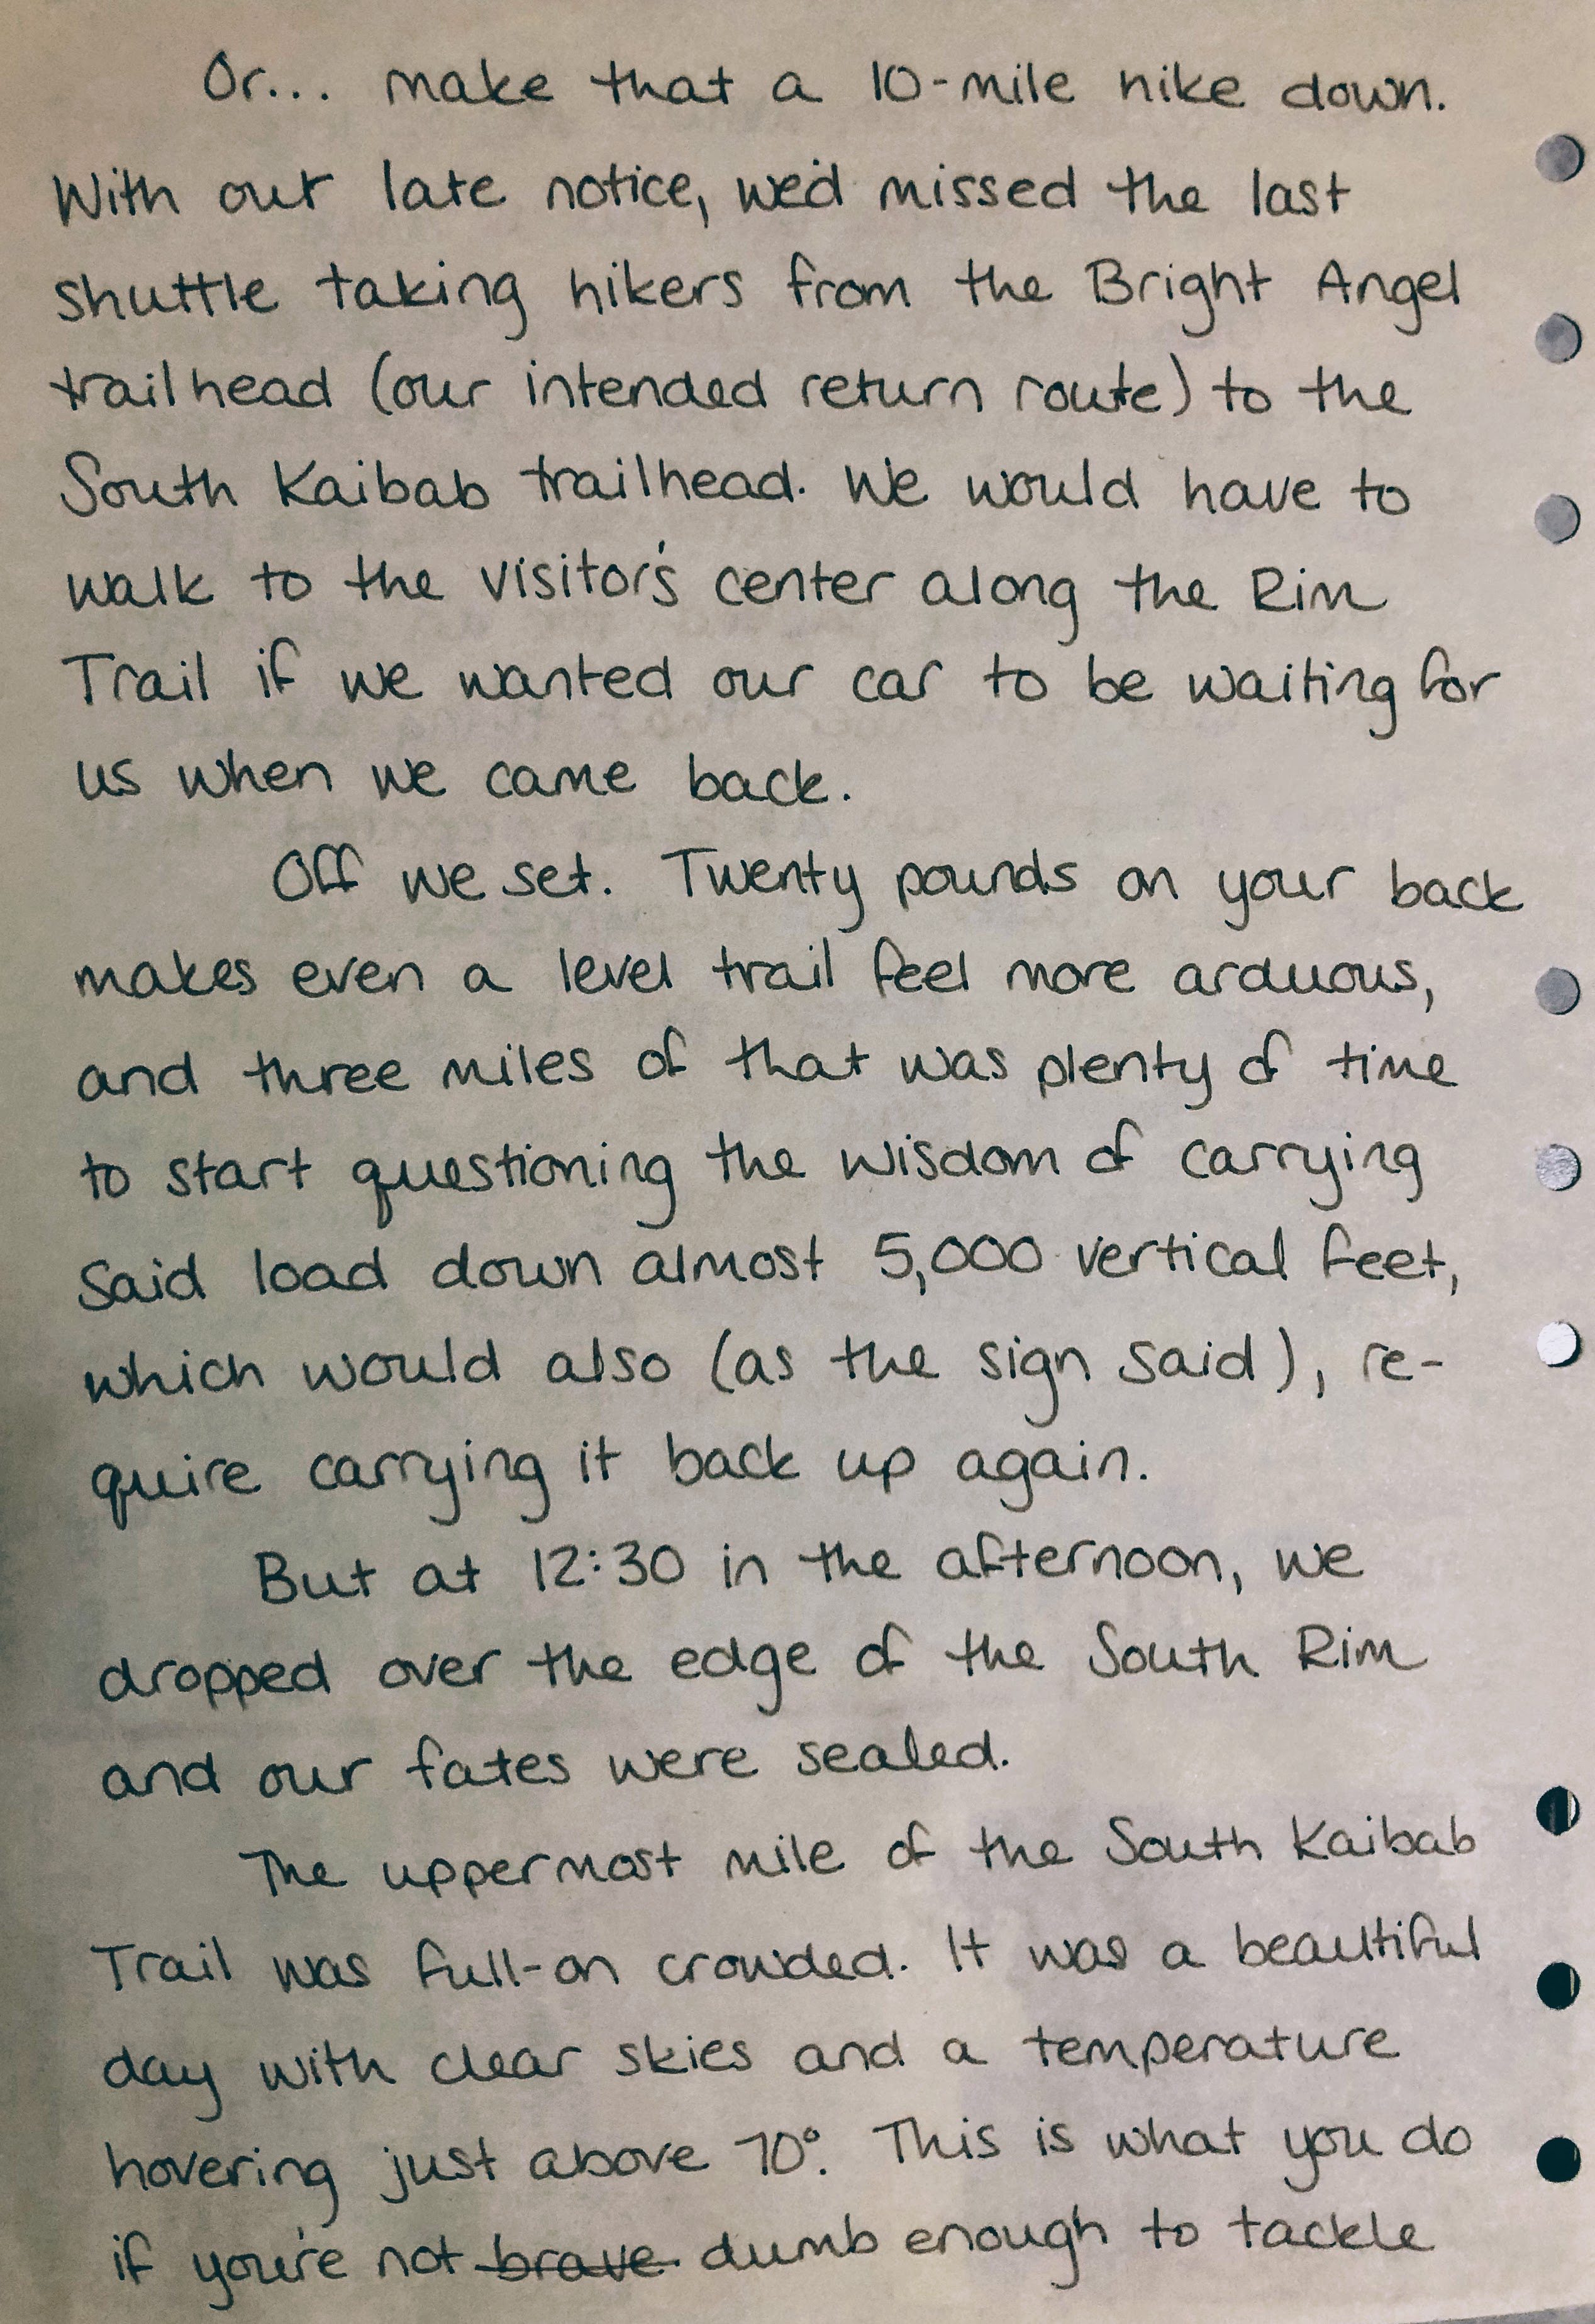 Or... make that a 10-mile hike down.
With our late notice, we'd missed the last
shuttle taking hikers from the Bright Angel
trailhead (our intended return route) to the
South Kaibab trailhead. We would have to
walk to the visitor's center along the Rim
Trail if we wanted our car to be waiting for
us when we came back.
Off we set. Twenty pounds on your back
makes even a level trail feel more arduous,
and three miles of that was plenty of time
to start questioning the wisdom of carrying
said load down almost 5,000 vertical feet,
which would also (as the sign said), re-
quire carrying it back up again.
But at 12:30 in the afternoon, we
dropped over the edge of the South Rim
and our fates were sealed.
The uppermost mile of the South Kaibab
Trail was full-on crowded. It was a beautiful
day with clear skies and a temperature
hovering just above 70°. This is what you do
if you're not brave dumb enough to tackle